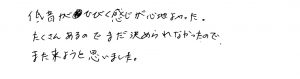 低音がひびく感じが心地よかった。
たくさんあるのでまだ決められなかったので、
また来ようと思いました。